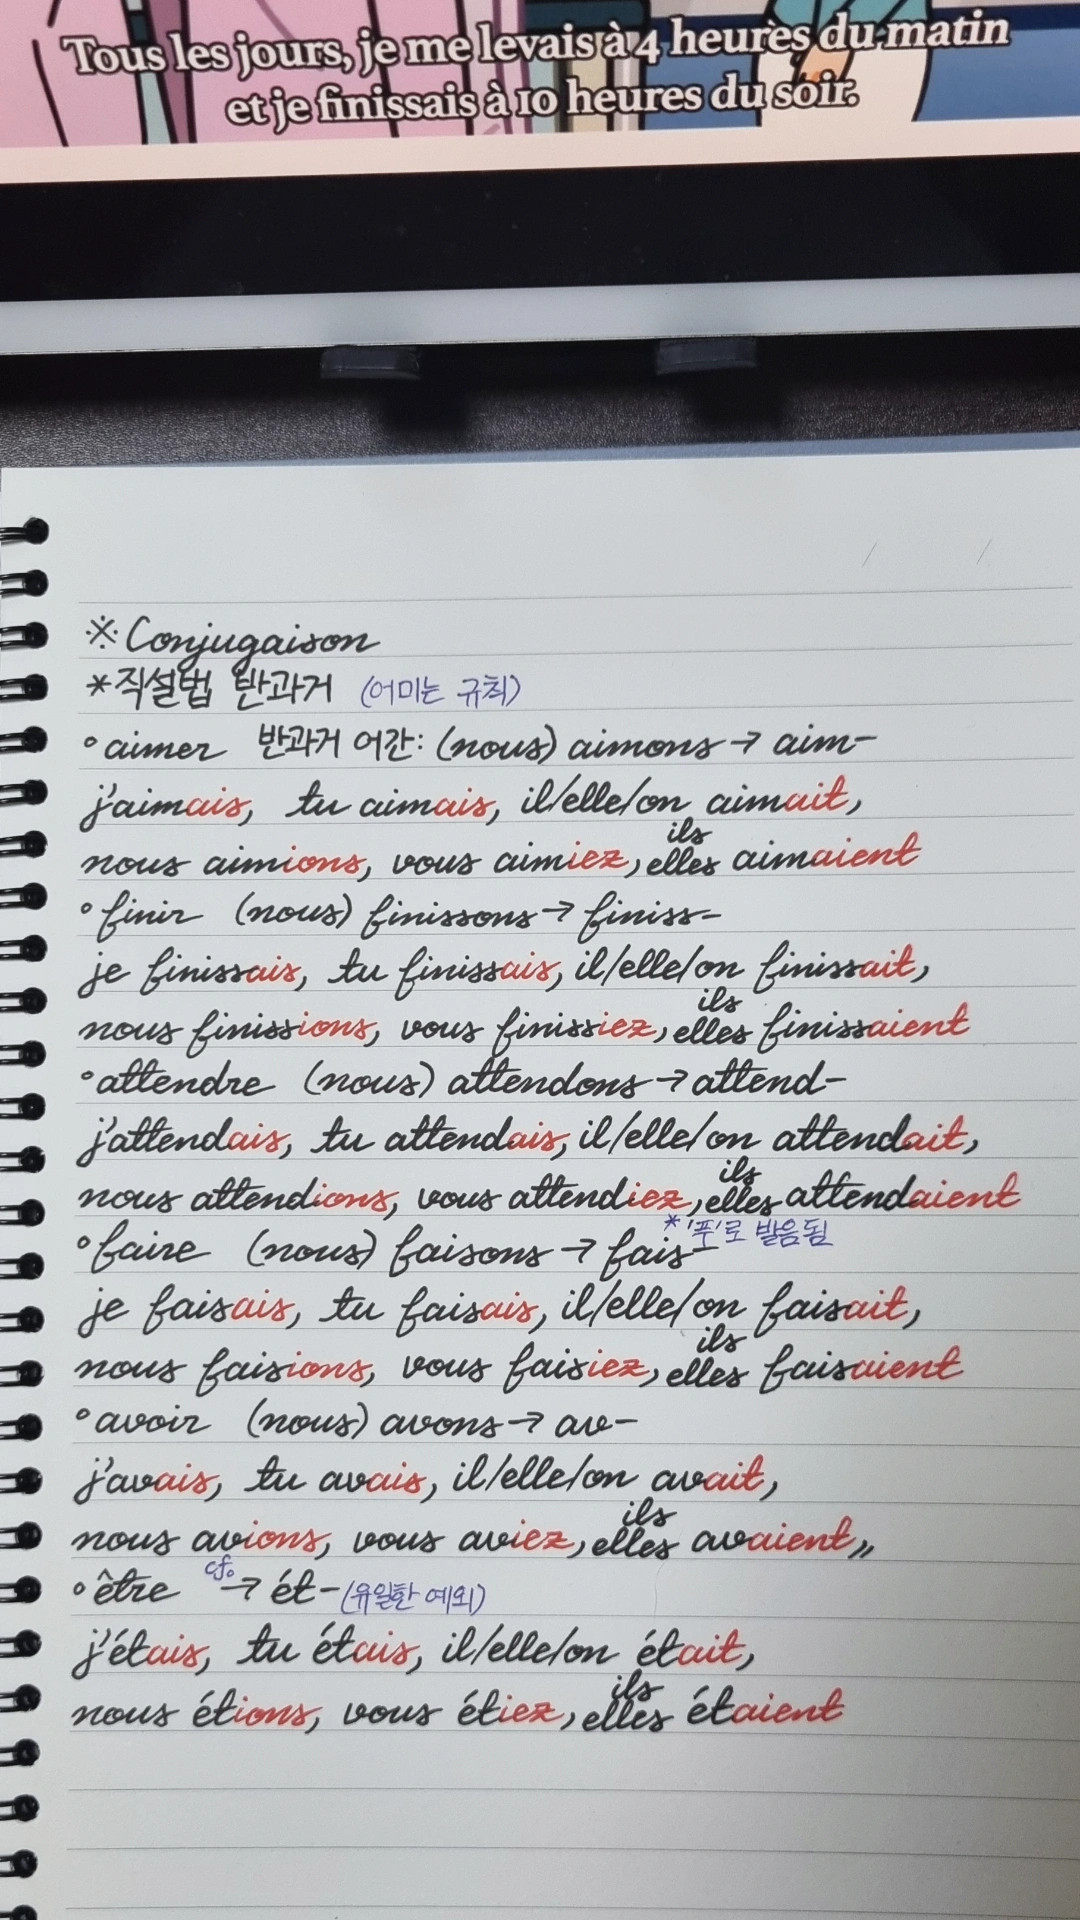 Tous les jours, je me levais à 4 heures du matin
et je finissais à 10 heures du soir.
※ Conjugaison
*직설법 반과거 (어미는 규칙)
°aimer 반과거 어간: (nous) aimons → aim-
j'aimais, tu aimais, il/elle/on aimait,
ils
nous aimions, vous aimiez, elles aimaient
°finir (nous) finissons → finiss-
je finissais, tu finissais, il/elle/on finissait,
ils
nous finissions, vous finissiez, elles finissaient
°attendre (nous) attendons → attend-
j'attendais, tu attendais, il/elle/on attendait,
ils
nous attendions, vous attendiez, elles attendaient
*'푸'로 발음됨
°faire (nous) faisons → fais-
je faisais, tu faisais, il/elle/on faisait,
ils
nous faisions, vous faisiez, elles faisaient
°avoir (nous) avons → av-
j'avais, tu avais, il/elle/on avait,
ils
nous avions, vous aviez, elles avaient,,
cf.
°être → ét- (유일한 예외)
j'étais, tu étais, il/elle/on était,
ils
nous étions, vous étiez, elles étaient